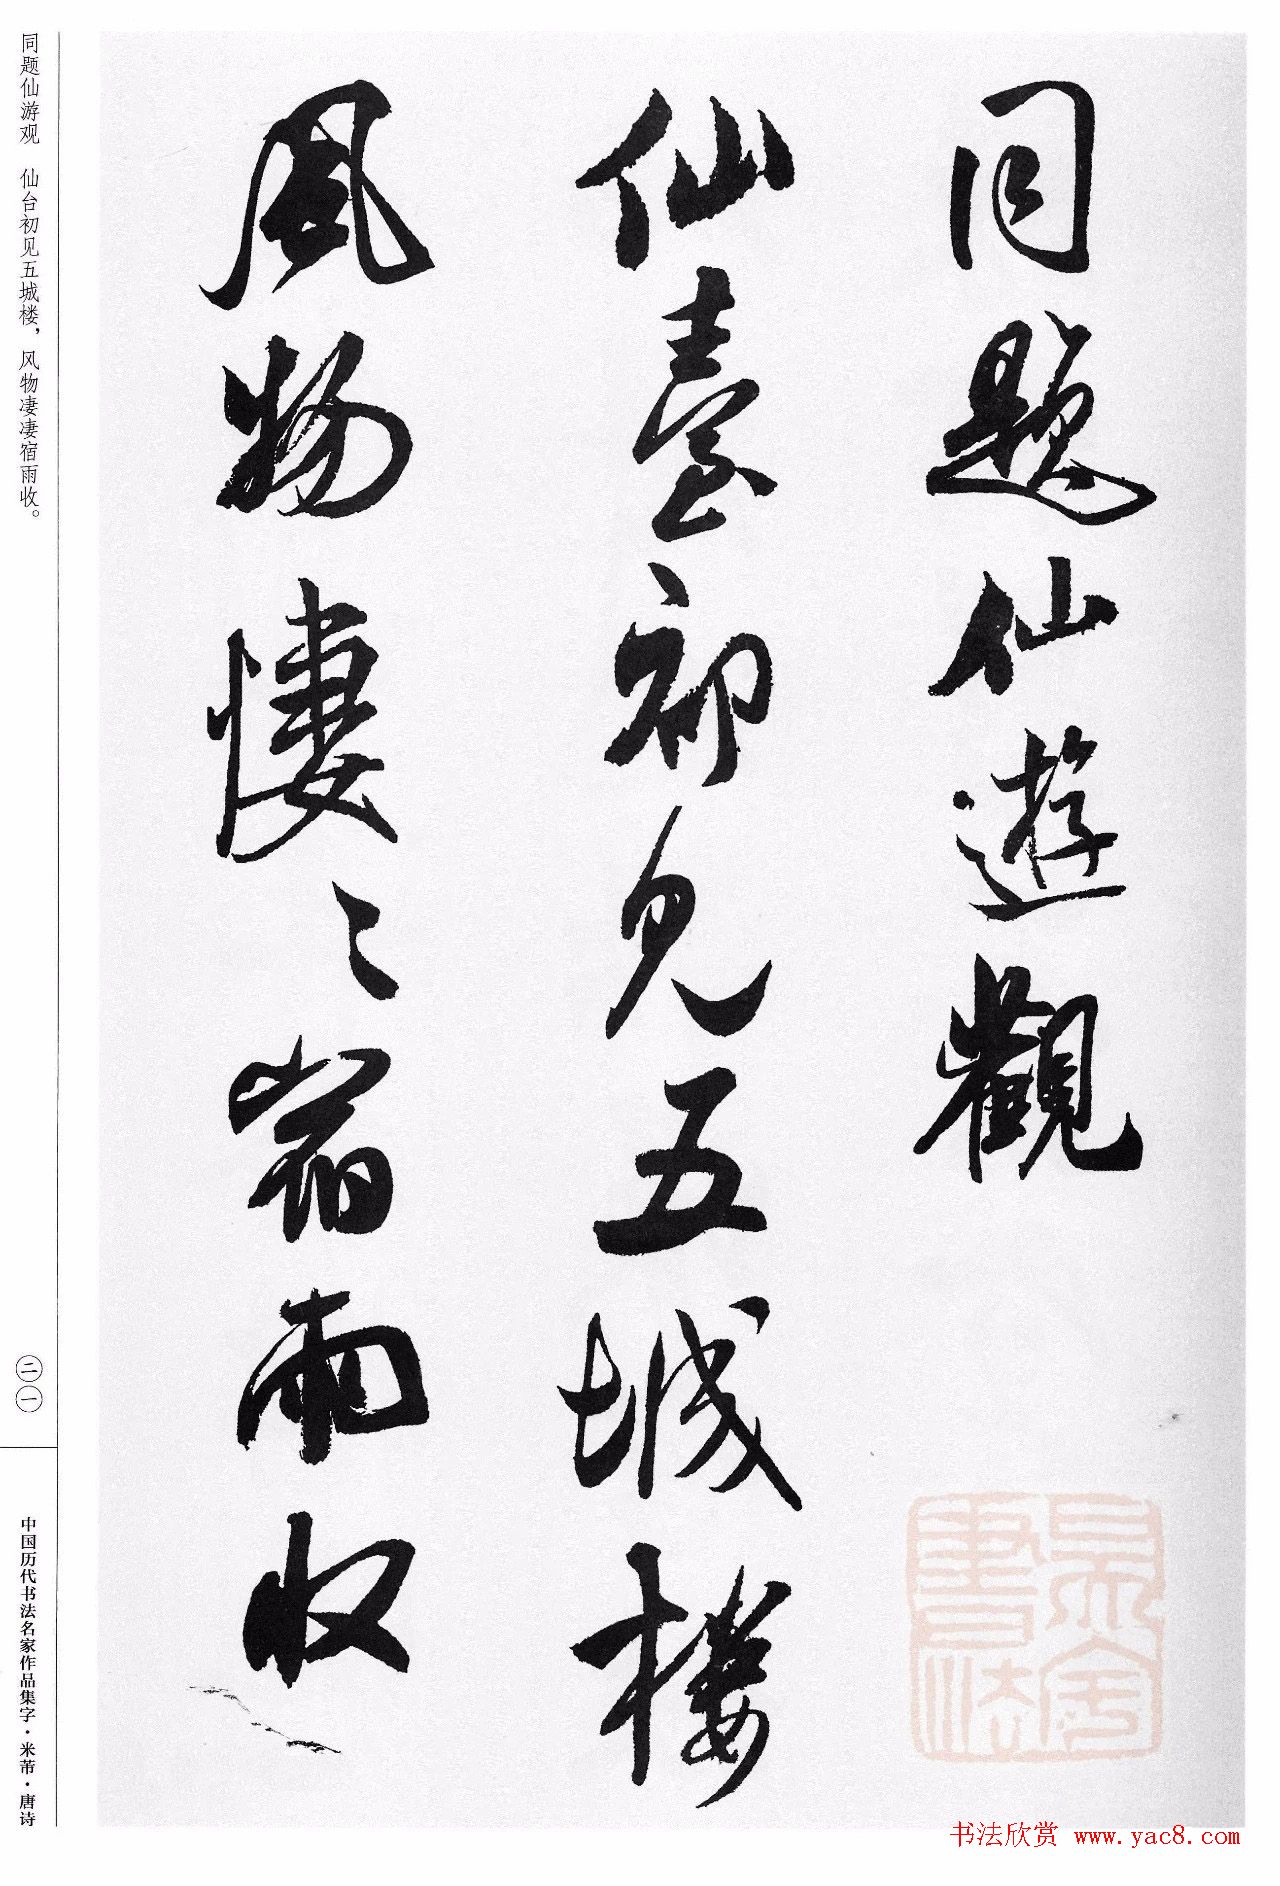 同題仙遊觀
仙臺初見五城樓
風物悽〻宿雨收
同题仙游观　仙台初见五城楼，风物凄凄宿雨收。
二一
中国历代书法名家作品集字·米芾·唐诗
书法欣赏 www.yac8.com